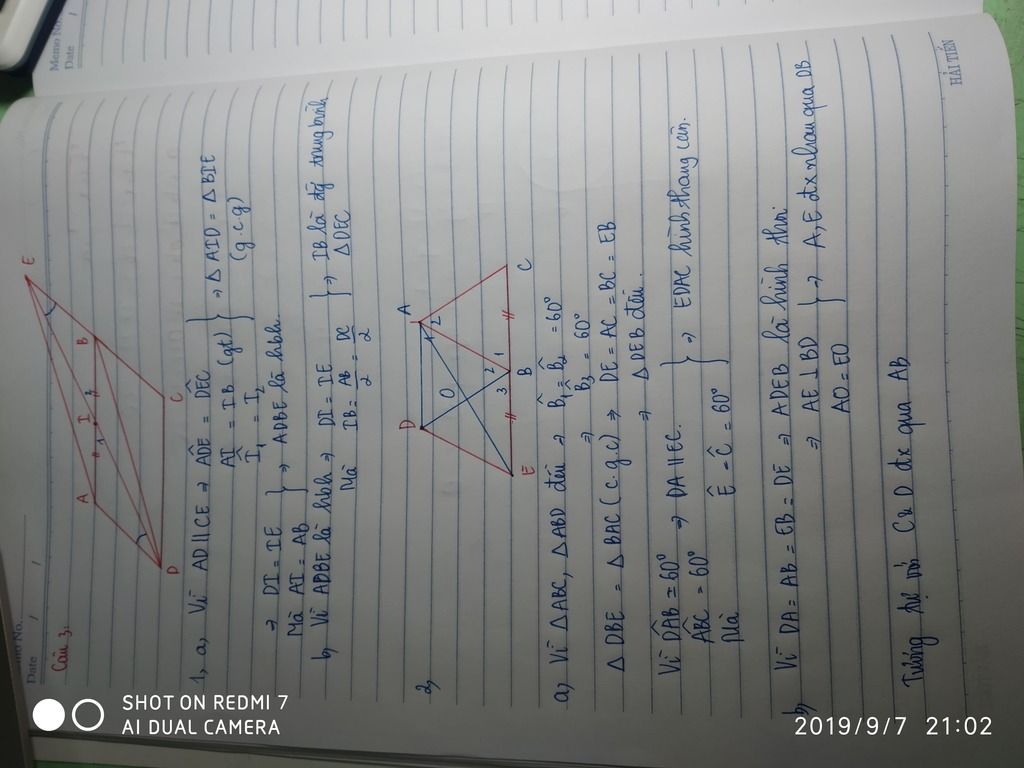 Memo No.
Date / /
Câu 3:
A I B E
1 2
D C
1, a, Vì AD//CE ⇒ ADÊ = DÊC
AI = IB (gt) } ⇒ △AID = △BIE
Î₁ = Î₂ (g.c.g)
⇒ DI = IE } ⇒ ADBE là hbh.
Mà AI = AB
b, Vì ADBE là hbh ⇒ DI = IE } ⇒ IB là đg trung bình
Mà IB = AB/2 = DC/2 △DEC
2,
D A
O 1 2
3 2 1
E B C
a, Vì △ABC, △ABD đều ⇒ B̂₁ = B̂₂ = 60°
⇒ B̂₃ = 60°
△DBE = △BAC (c.g.c) ⇒ DE = AC = BC = EB
⇒ △DEB đều.
Vì DÂB = 60° ⇒ DA//EC.
AB̂C = 60° } ⇒ EDAC hình thang cân.
Mà Ê = Ĉ = 60°
b, Vì DA = AB = EB = DE ⇒ ADEB là hình thoi
⇒ AE ⊥ BD } ⇒ A, E đx nhau qua DB
AO = EO
Tương tự với C và D đx qua AB
HẢI TIẾN
Memo No.
Date /
SHOT ON REDMI 7
AI DUAL CAMERA
2019/9/7 21:02